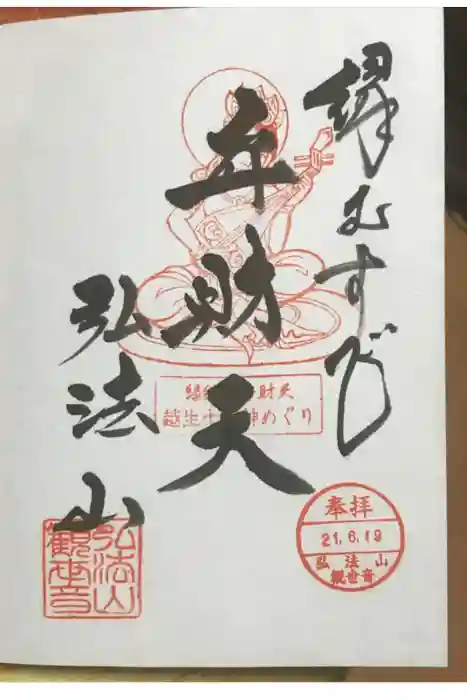 縁むすび
弁財天
弘法山
財天
越生十 神めぐり
奉拝
21.6.19
弘法山
観世音
弘法山
観世音